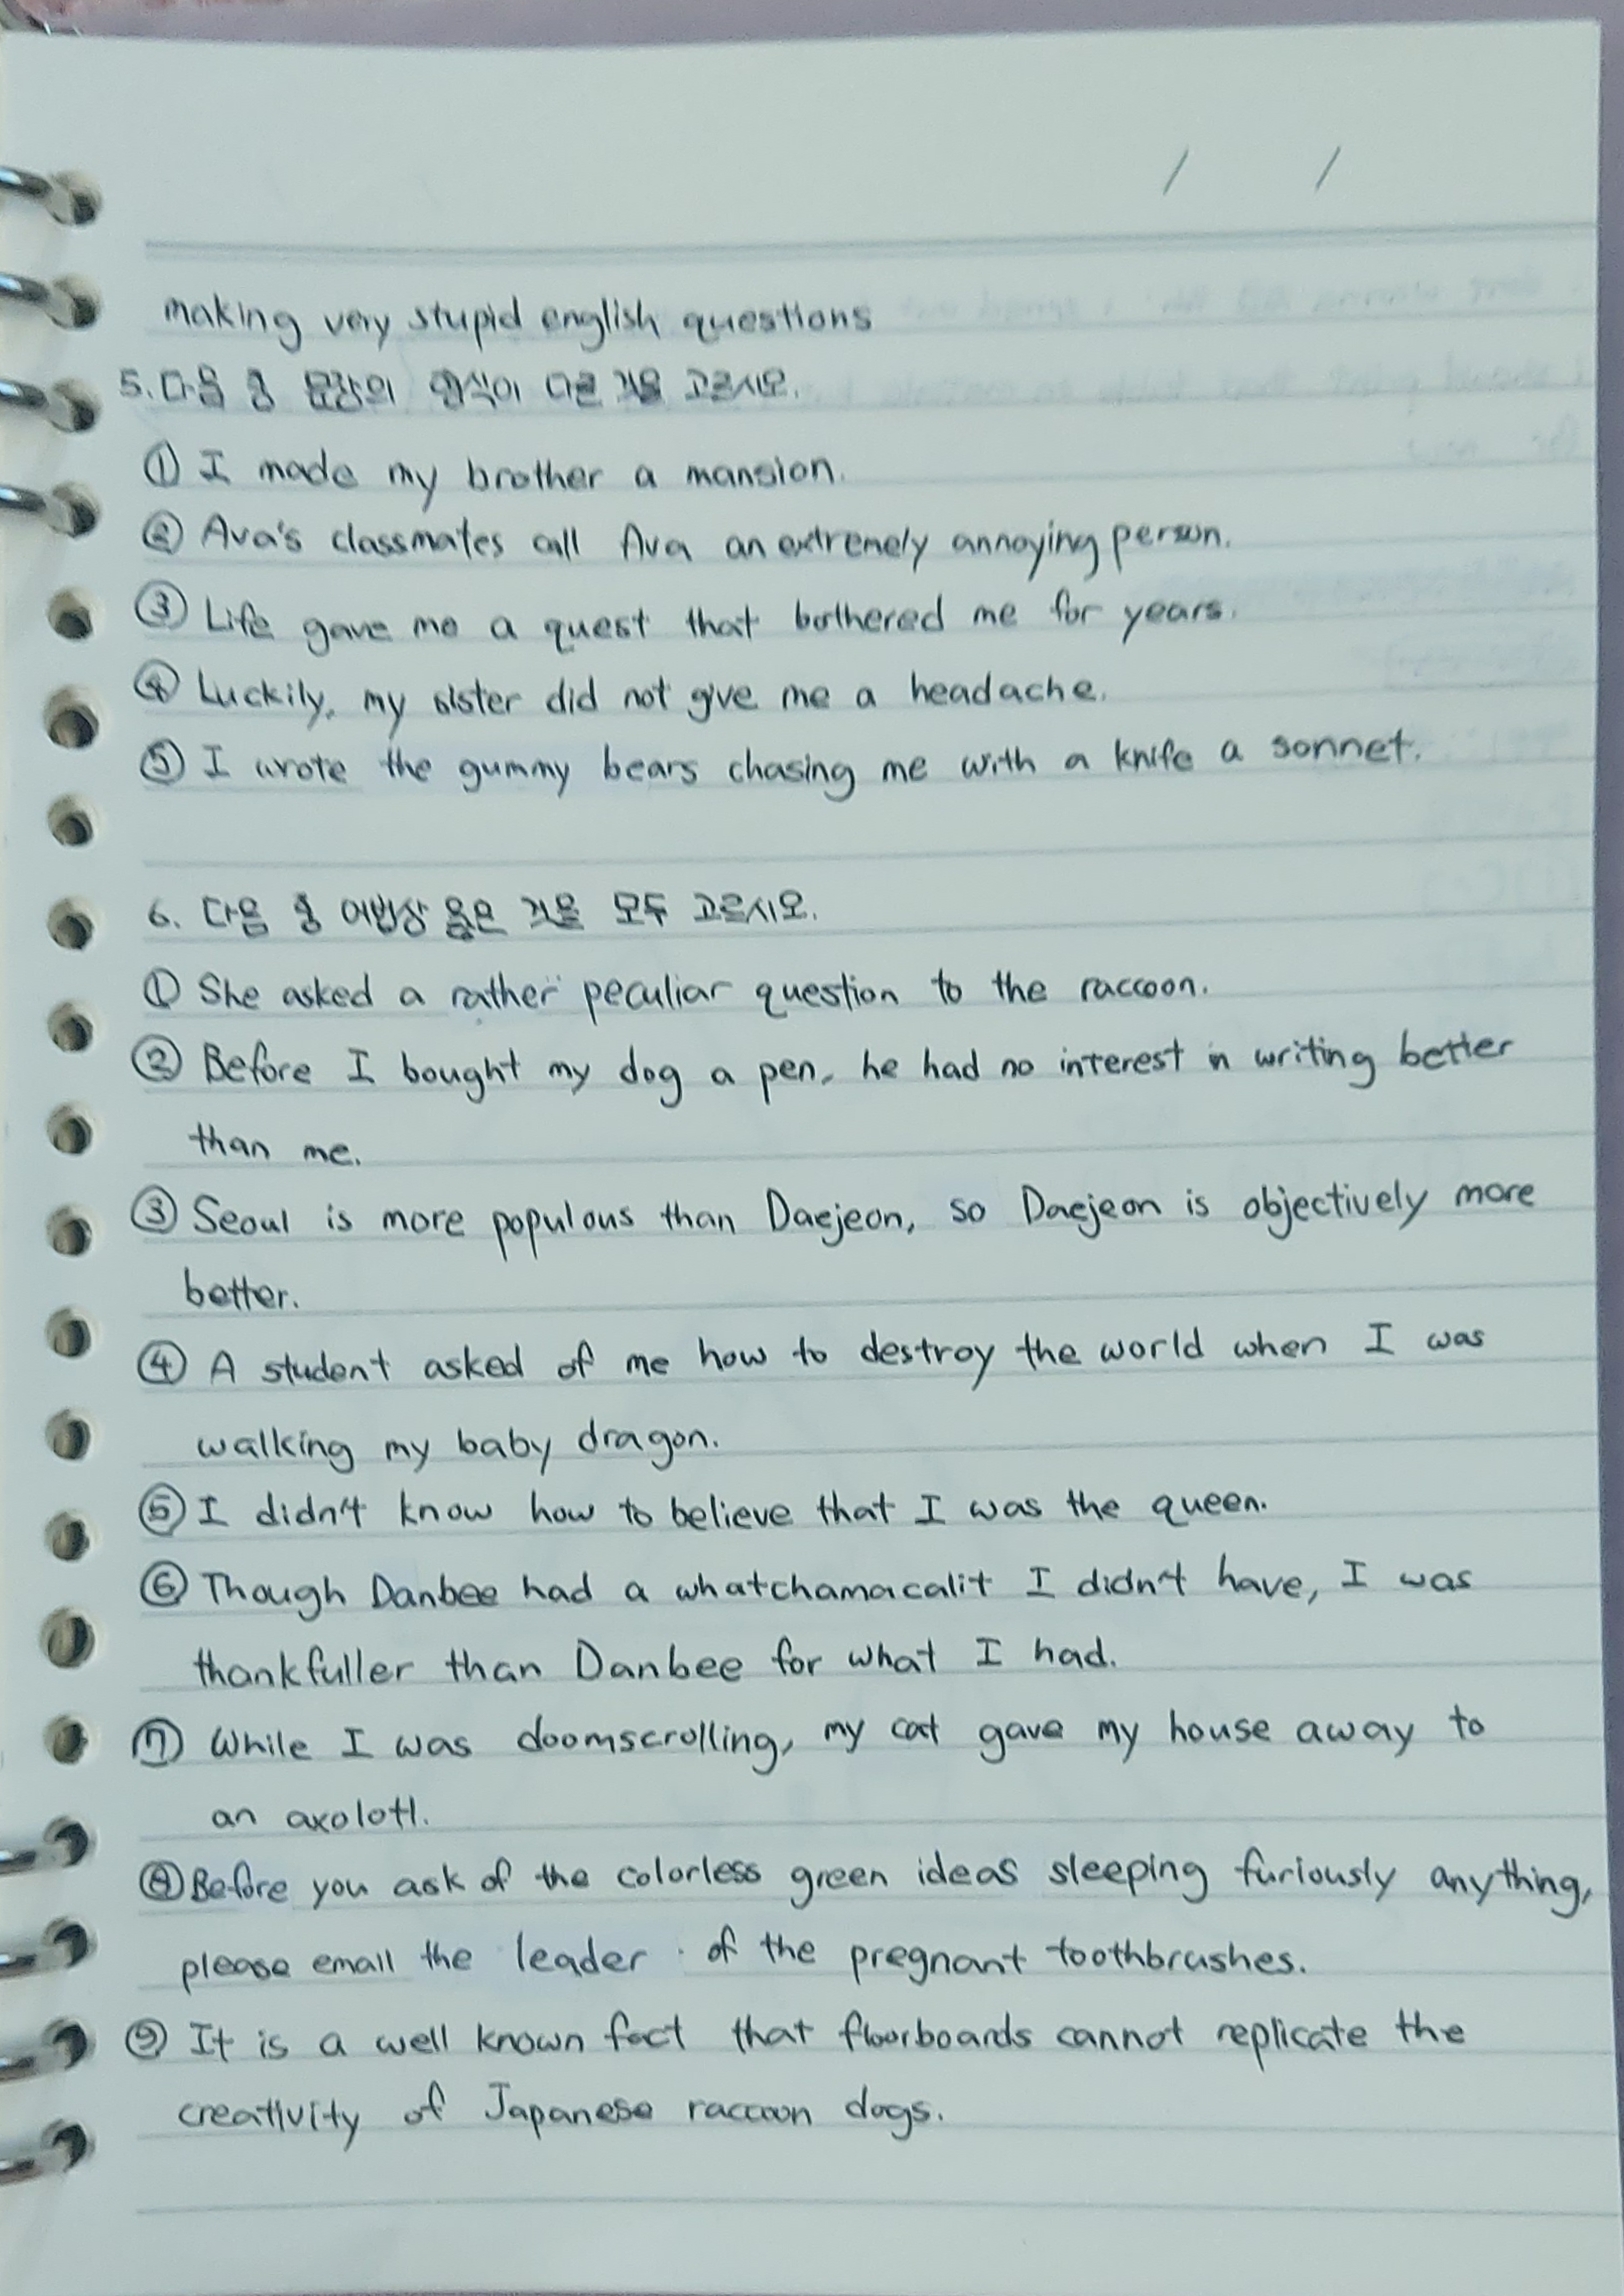 / /
making very stupid english questions
5. 다음 중 문장의 형식이 다른 것을 고르시오.
① I made my brother a mansion.
② Ava's classmates call Ava an extremely annoying person.
③ Life gave me a quest that bothered me for years.
④ Luckily, my sister did not give me a headache.
⑤ I wrote the gummy bears chasing me with a knife a sonnet.
6. 다음 중 어법상 옳은 것을 모두 고르시오.
① She asked a rather peculiar question to the raccoon.
② Before I bought my dog a pen, he had no interest in writing better
than me.
③ Seoul is more populous than Daejeon, so Daejeon is objectively more
better.
④ A student asked of me how to destroy the world when I was
walking my baby dragon.
⑤ I didn't know how to believe that I was the queen.
⑥ Though Danbee had a whatchamacalit I didn't have, I was
thankfuller than Danbee for what I had.
⑦ While I was doomscrolling, my cat gave my house away to
an axolotl.
⑧ Before you ask of the colorless green ideas sleeping furiously anything,
please email the leader of the pregnant toothbrushes.
⑨ It is a well known fact that floorboards cannot replicate the
creativity of Japanese raccoon dogs.